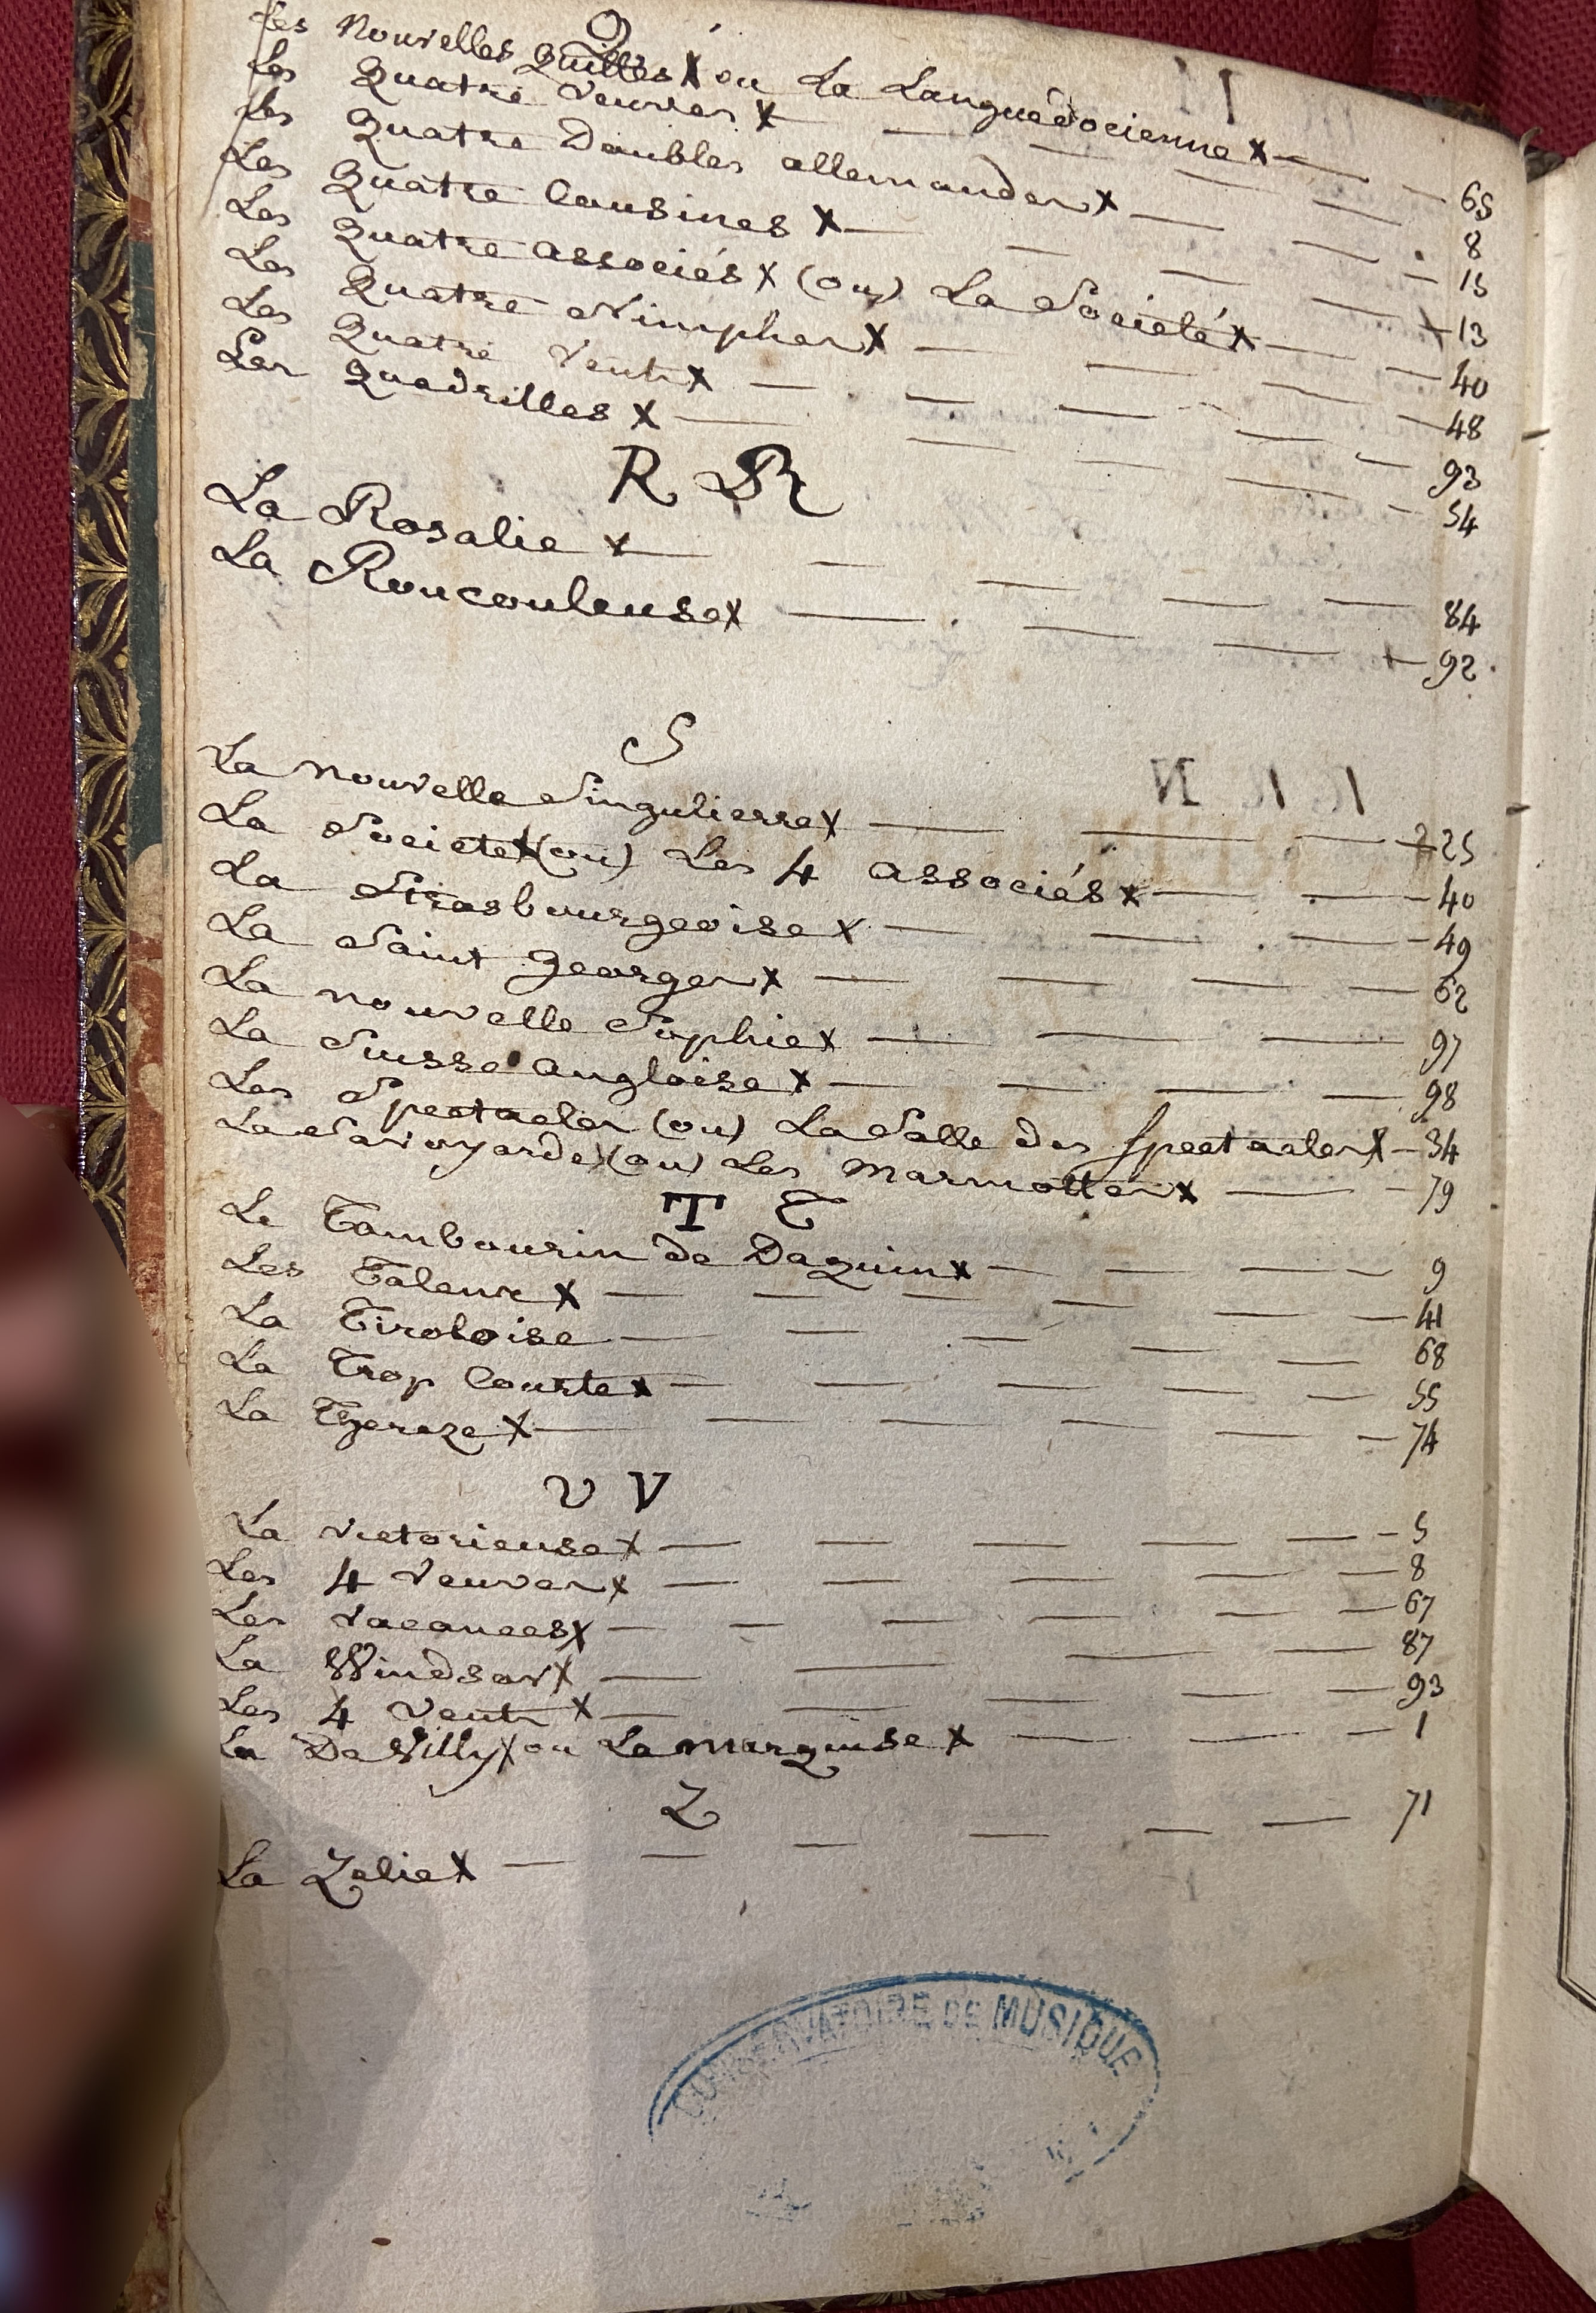 Q
Les Nouvelles Quilles X ou La Languedocienne X — 65
Les Quatre Veuves X — 8
Les Quatre Doubles allemandes X — 15
Les Quatre Cousines X — 13
Les Quatre associés X (ou) La Société X — 40
Les Quatre Nimphes X — 48
Les Quatre Vents X — 93
Les Quadrilles X — 54
R R
La Rosalie X — 84
La Roucouleuse X — 92
S
La nouvelle Singulierre X — 25
La Societé X (ou) Les 4 associés X — 40
La Strasbourgeoise X — 49
La Saint Georges X — 62
La nouvelle Sophie X — 97
La Suisse angloise X — 98
Les Spectacles (ou) La Salle des Spectacles X — 34
La Savoyarde X (ou) Les Marmottes X — 79
T T
Le Tambourin de Daquin X — 9
Les Talens X — 41
La Tiroloise — 68
La Trop Courte X — 55
La Thereze X — 74
V V
La victorieuse X — 5
Les 4 Veuves X — 8
Les Vacances X — 67
La Windsor X — 87
Les 4 Vents X — 93
La De Willy X ou La Marquise X — 1
Z
La Zelie X — 71
CONSERVATOIRE DE MUSIQUE